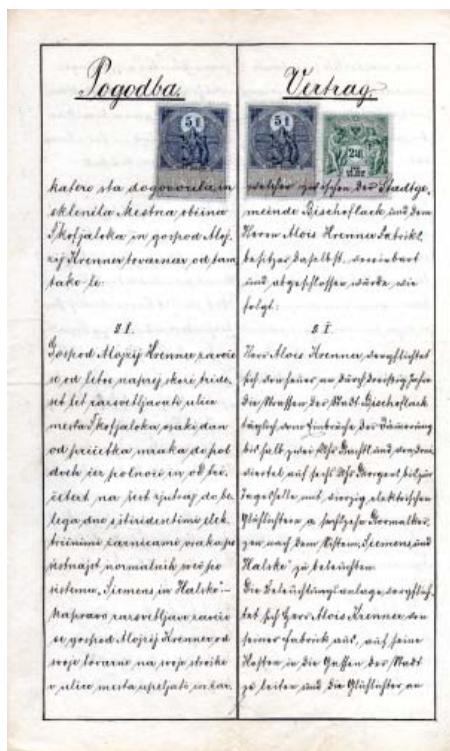 Pogodba.
katero sta dogovorila in
sklenila Mestna občina
Škofjaloka in gospod Aloj-
zij Krenner tovarnar od tam
tako le:
§ I.
Gospod Alojzij Krenner zaveže
se od letos naprej skozi tride-
set let razsvetljavati ulice
mesta Škofjaloka vsaki dan
od pričetka mraka do pol
dveh čez polnoči in od tri
četrt na šest zjutraj do be-
lega dne s štiridesetimi elek-
tričnimi žarnicami vsako po
šestnajst normalnih sveč po
sistemu „Siemens in Halske“.
Napravo razsvetljave zaveže
se gospod Alojzij Krenner od
svoje tovarne na svoje stroške
v ulice mesta vpeljati in žar-
Vertrag.
5 fl
5 fl
welcher zwischen der Stadtge-
meinde Bischoflack und dem
Herrn Alois Krenner Fabriks-
besitzer daselbst, vereinbart
und abgeschlossen wurde, wie
folgt:
§ I
Herr Alois Krenner, verpflichtet
sich von heuer an durch dreißig Jahre
die Strassen der Stadt Bischoflack
täglich vom Einbruche der Dämmerung
bis halb zwei Uhr Nachts und von drei
viertel auf sechs Uhr Morgens bis zur
Tageshelle mit vierzig elektrischen
Glühlichtern a sechzehn Normalker-
zen nach dem System „Siemens und
Halske“ zu beleuchten.
Die Beleuchtungsanlage verpflich-
tet sich Herr Alois Krenner von
seiner Fabrik aus, auf seine
Kosten in die Gassen der Stadt
zu leiten und die Glühlichter an